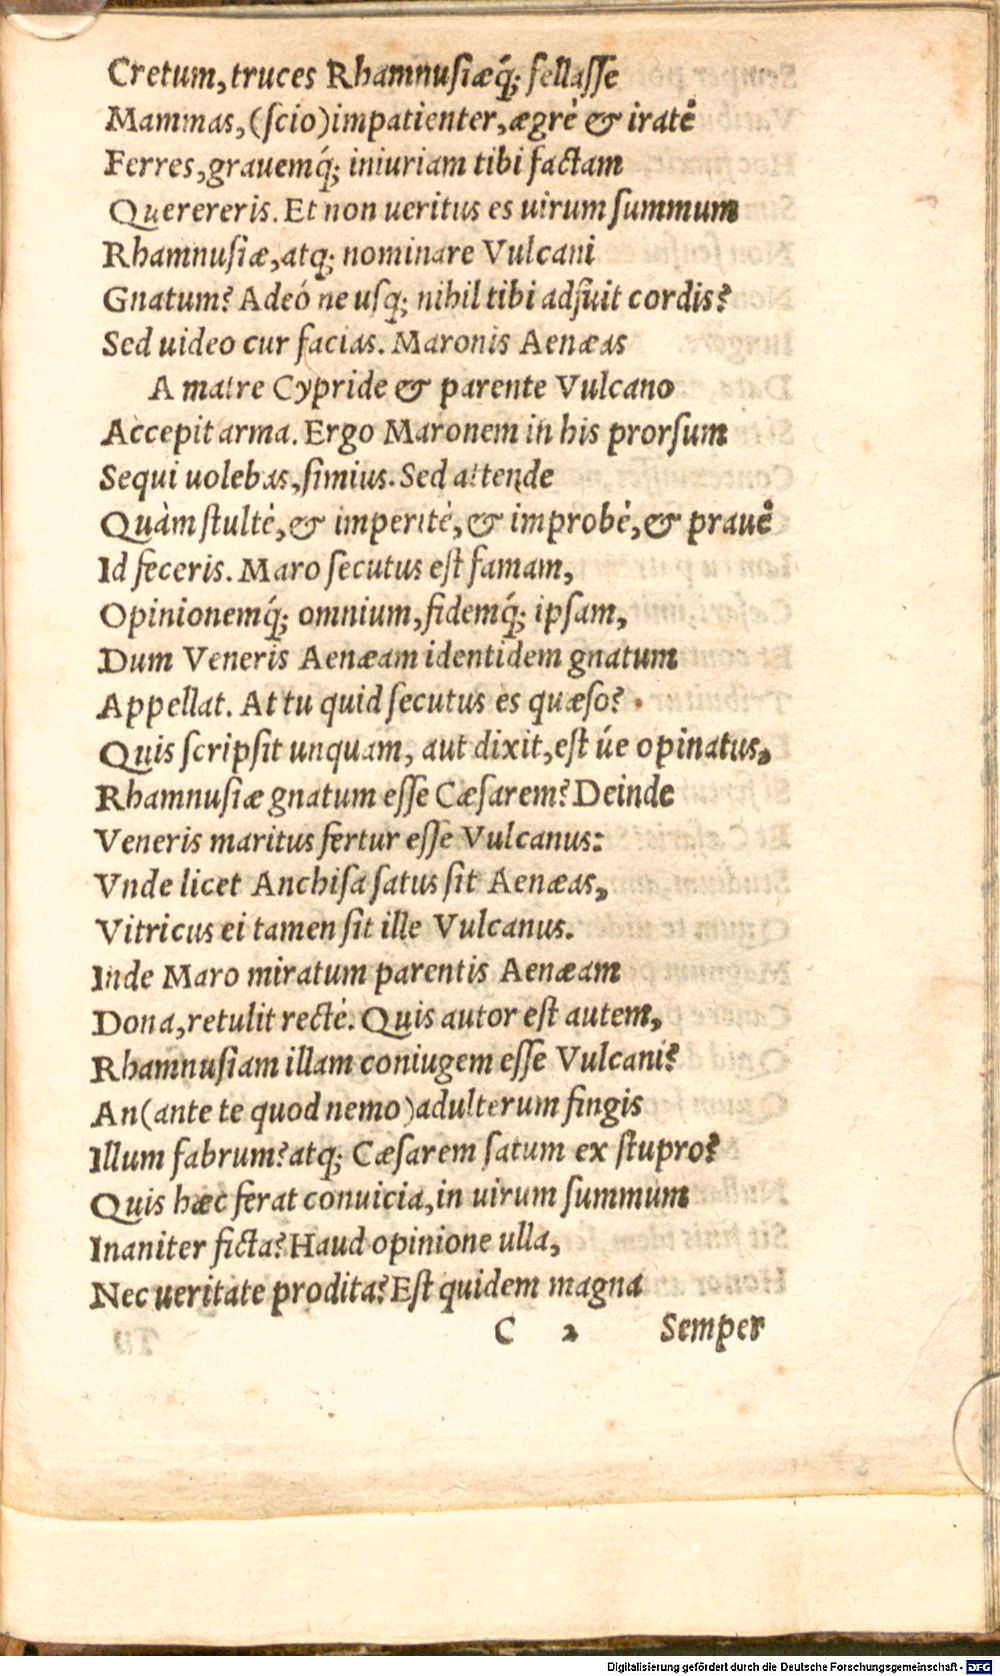 Cretum, truces Rhamnusiæq́; fellaſſe
Mammas, (ſcio) impatienter, ægrè & iratè
Ferres, grauemq́; iniuriam tibi factam
Querereris. Et non ueritus es uirum ſummum
Rhamnusiæ, atq; nominare Vulcani
Gnatum? Adeó ne uſq; nihil tibi adfuit cordis?
Sed uideo cur facias. Maronis Aenæas
A matre Cypride & parente Vulcano
Accepit arma. Ergo Maronem in his prorſum
Sequi uolebas, ſimius. Sed attende
Quàm ſtultè, & imperitè, & improbè, & prauè
Id feceris. Maro ſecutus eſt famam,
Opinionemq́; omnium, fidemq́; ipſam,
Dum Veneris Aenæam identidem gnatum
Appellat. At tu quid ſecutus es quæſo?
Quis ſcripſit unquam, aut dixit, eſt úe opinatus,
Rhamnuſiæ gnatum eſſe Cæſarem? Deinde
Veneris maritus fertur eſſe Vulcanus:
Vnde licet Anchiſa ſatus ſit Aenæas,
Vitricus ei tamen ſit ille Vulcanus.
Inde Maro miratum parentis Aenæam
Dona, retulit rectè. Quis autor eſt autem,
Rhamnuſiam illam coniugem eſſe Vulcani?
An (ante te quod nemo) adulterum fingis
Illum fabrum? atq; Cæſarem ſatum ex ſtupro?
Quis hæc ferat convicia, in uirum ſummum
Inaniter ficta? Haud opinione ulla,
Nec ueritate prodita? Eſt quidem magna
C 2 Semper
Digitalisierung gefördert durch die Deutsche Forschungsgemeinschaft - DFG